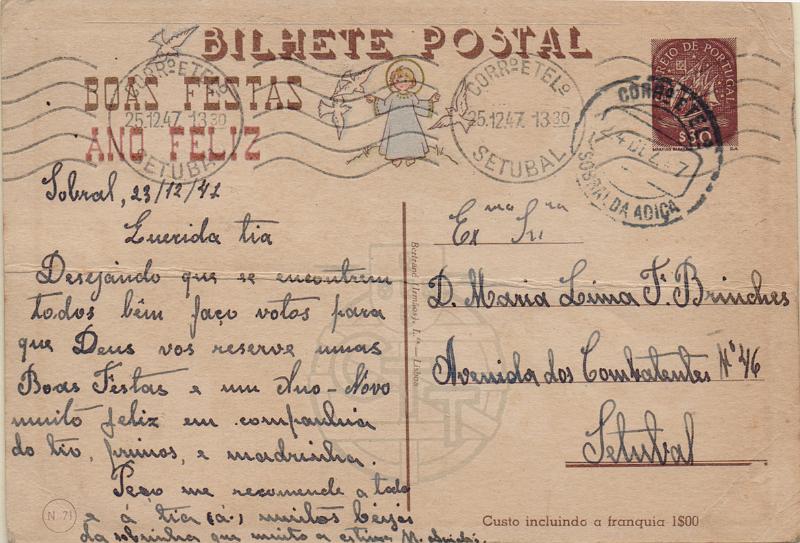 BILHETE POSTAL
BOAS FESTAS
ANO FELIZ
CORRº E TELº
25.12.47. 13 30
SETUBAL
CORRº E TELº
25.12.47. 13 30
SETUBAL
CORREIO DE PORTUGAL
$30
CORRº E TEL
SOBRAL DA ADIÇA
Sobral, 23/12/47
Querida tia
Desejando que se encontrem
todos bêm faço votos para
que Deus vos reserve umas
Boas Festas e um Ano-Novo
muito feliz em companhia
do tio, primos, e madrinha.
Peço me recomende a todo
e á tia (a) muitos beijos
da sobrinha que muito a estima M.
Exma Sra
D. Maria Lima F. Brinches
Avenida dos Combatentes Nº 46
Setubal
Bertrand (Irmãos), L.da — Lisboa
N. 71
Custo incluindo a franquia 1$00